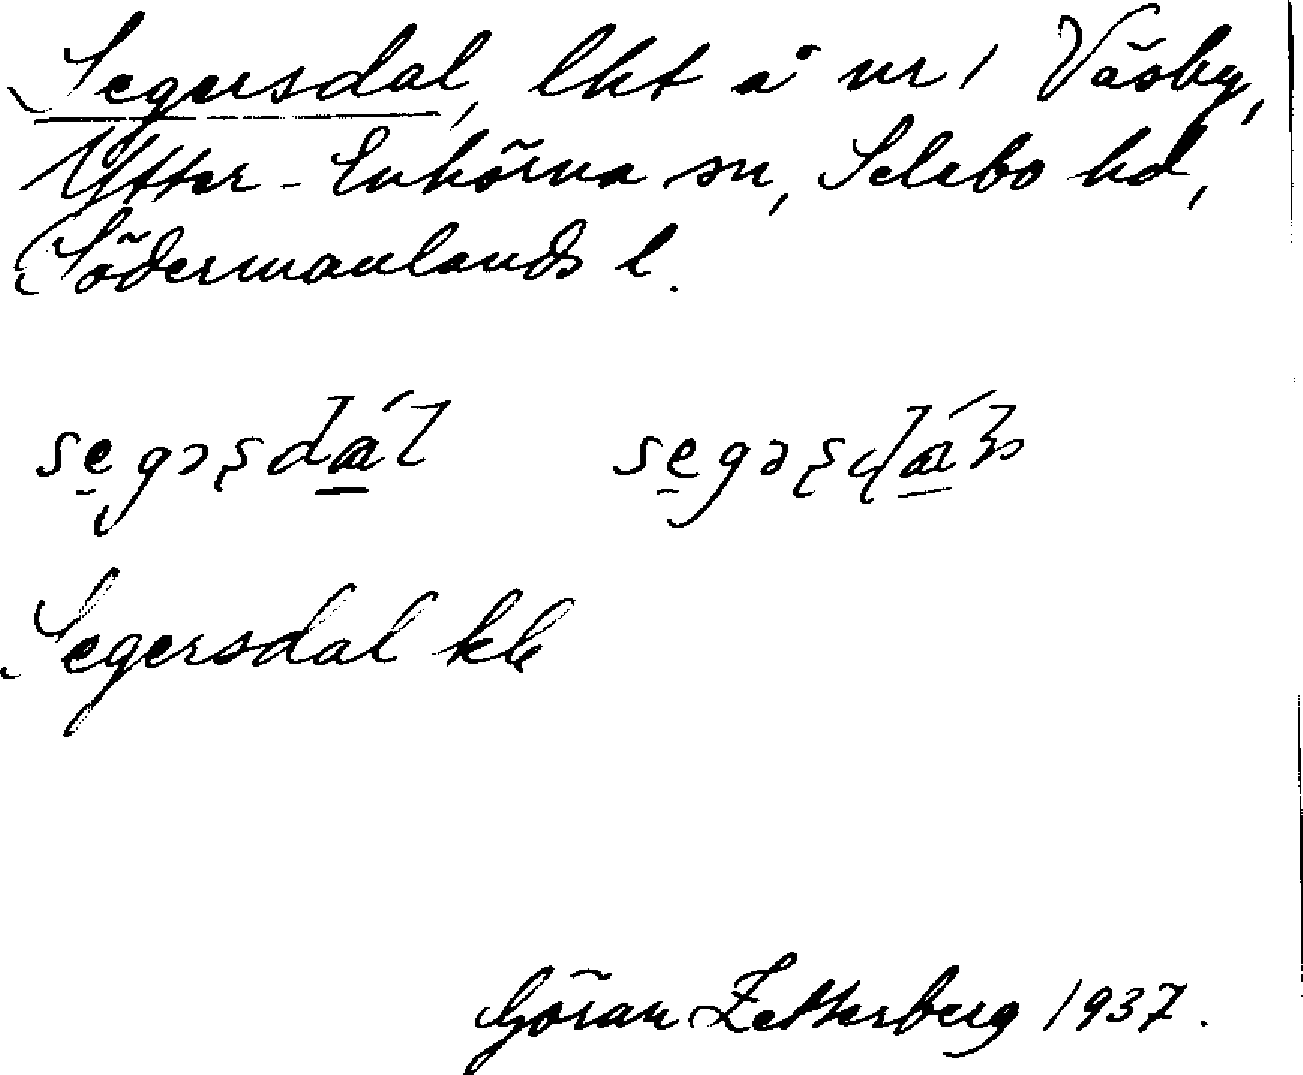 Segersdal, lht å nr 1 Väsby,
Ytter-Enhörna sn, Selebo hd,
Södermanlands l.
Segersdal kk
Göran Zetterberg 1937.